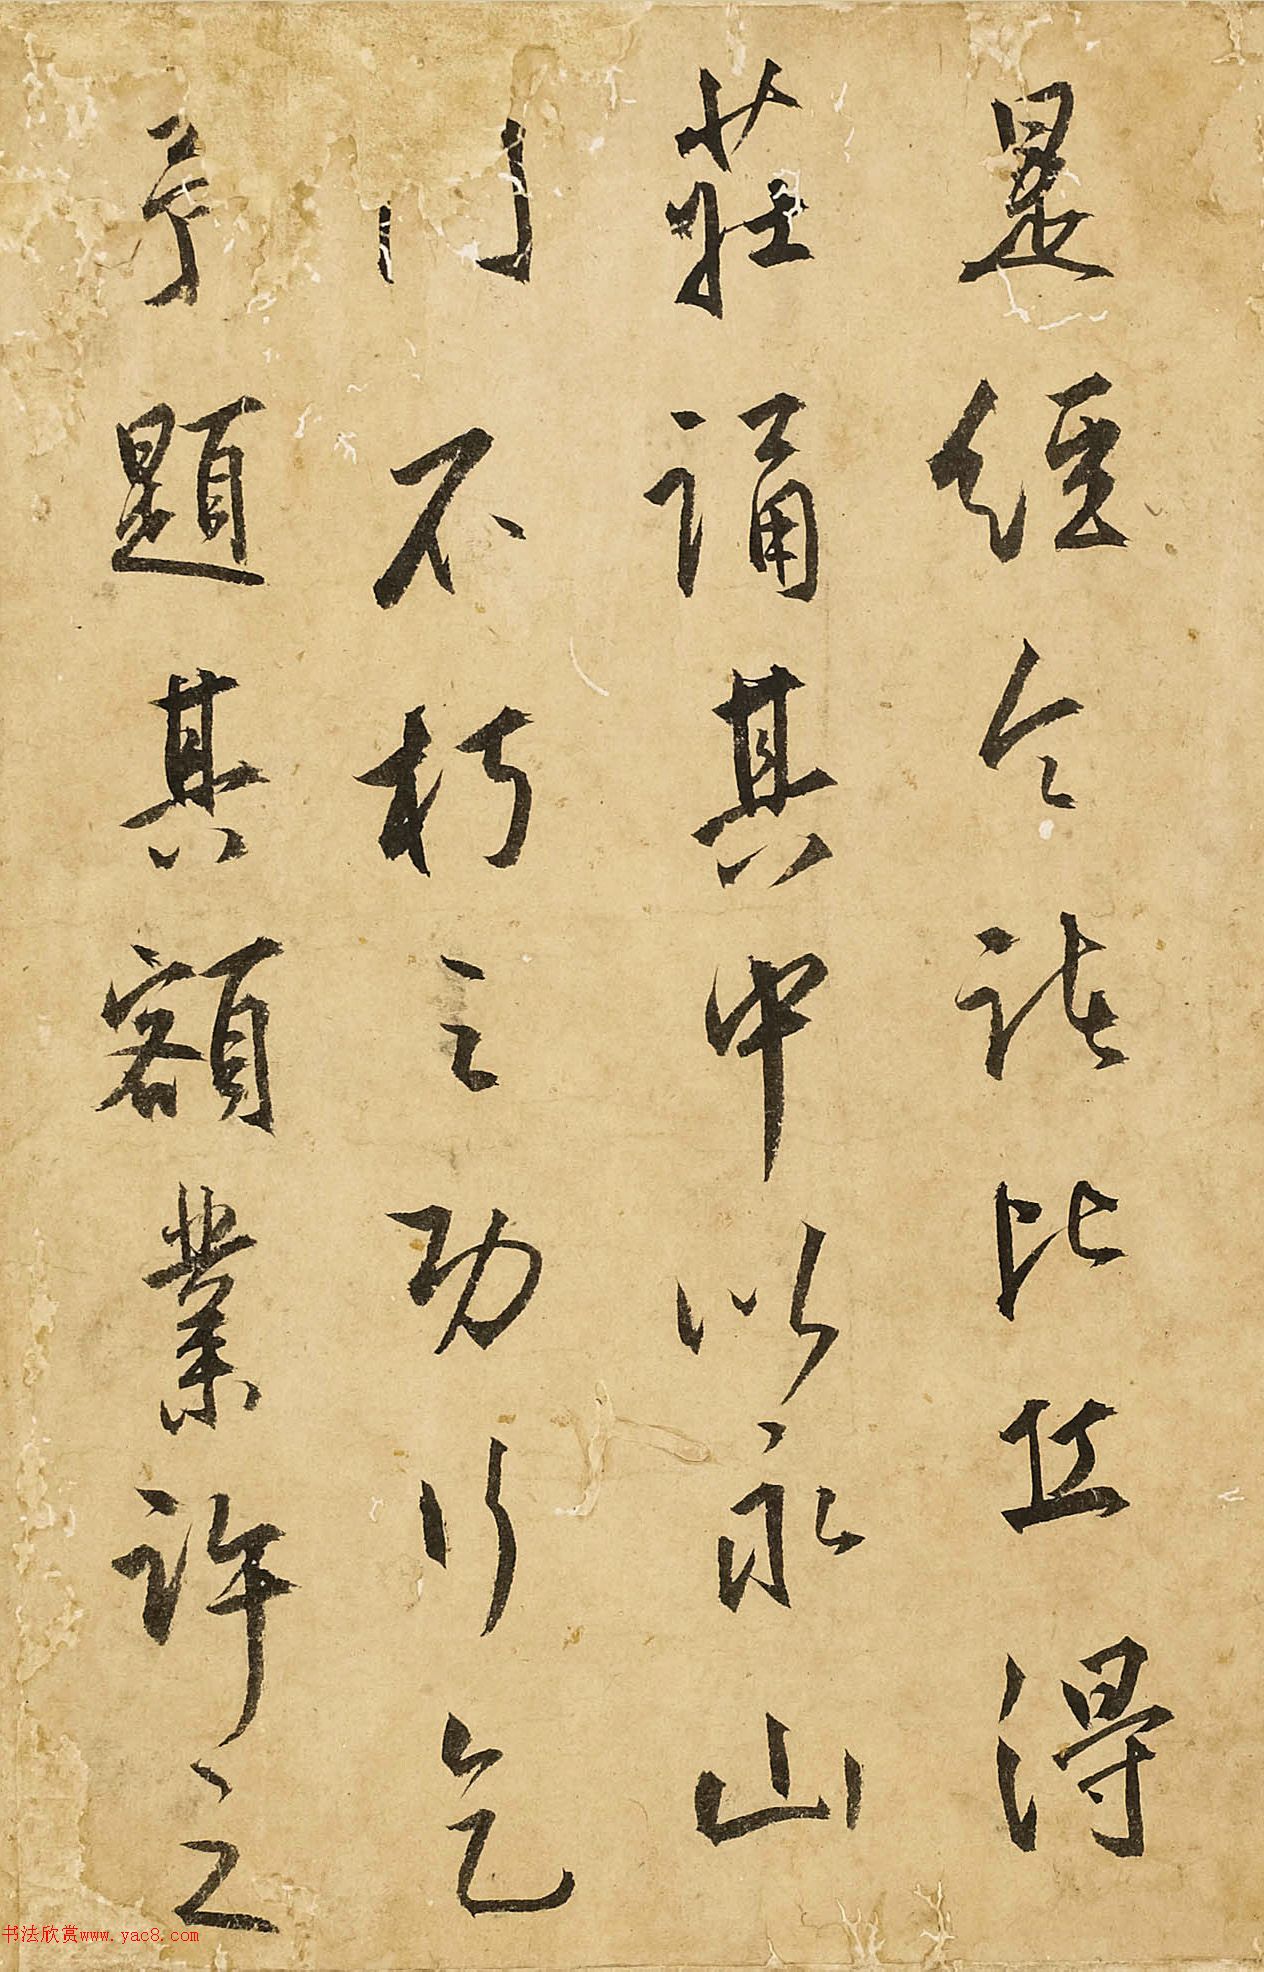 是經令諸比丘得
莊誦其中以永山
門不朽之功行乞
予題其額業許之
书法欣赏www.yac8.com